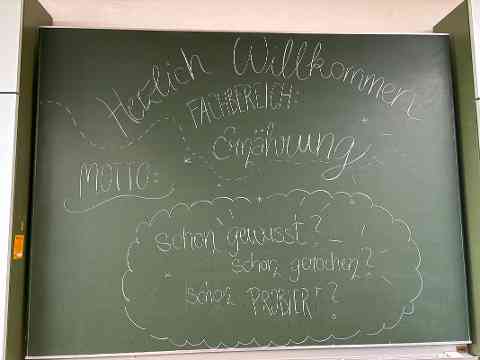 Herzlich Willkommen
FACHBEREICH:
Ernährung
MOTTO:
schon gewusst?
schon gerochen?
schon PROBIERT?